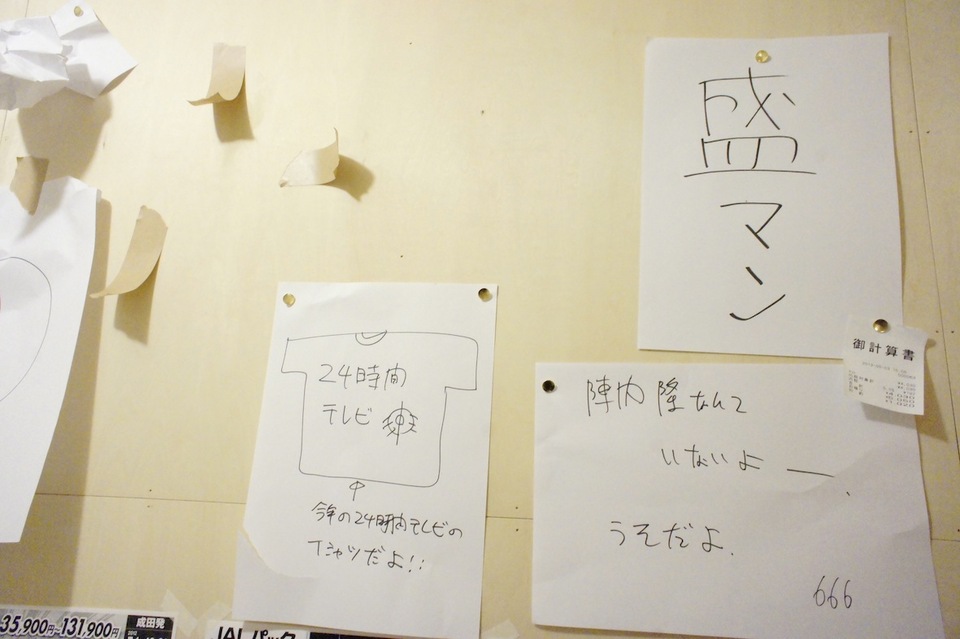 盛
マン
御計算書
24時間
テレビ
今年の24時間テレビの
Tシャツだよ!!
陣内 隆なんて
いないよー、
うそだよ.
666
35,900円~131,900円
成田発
JALパック